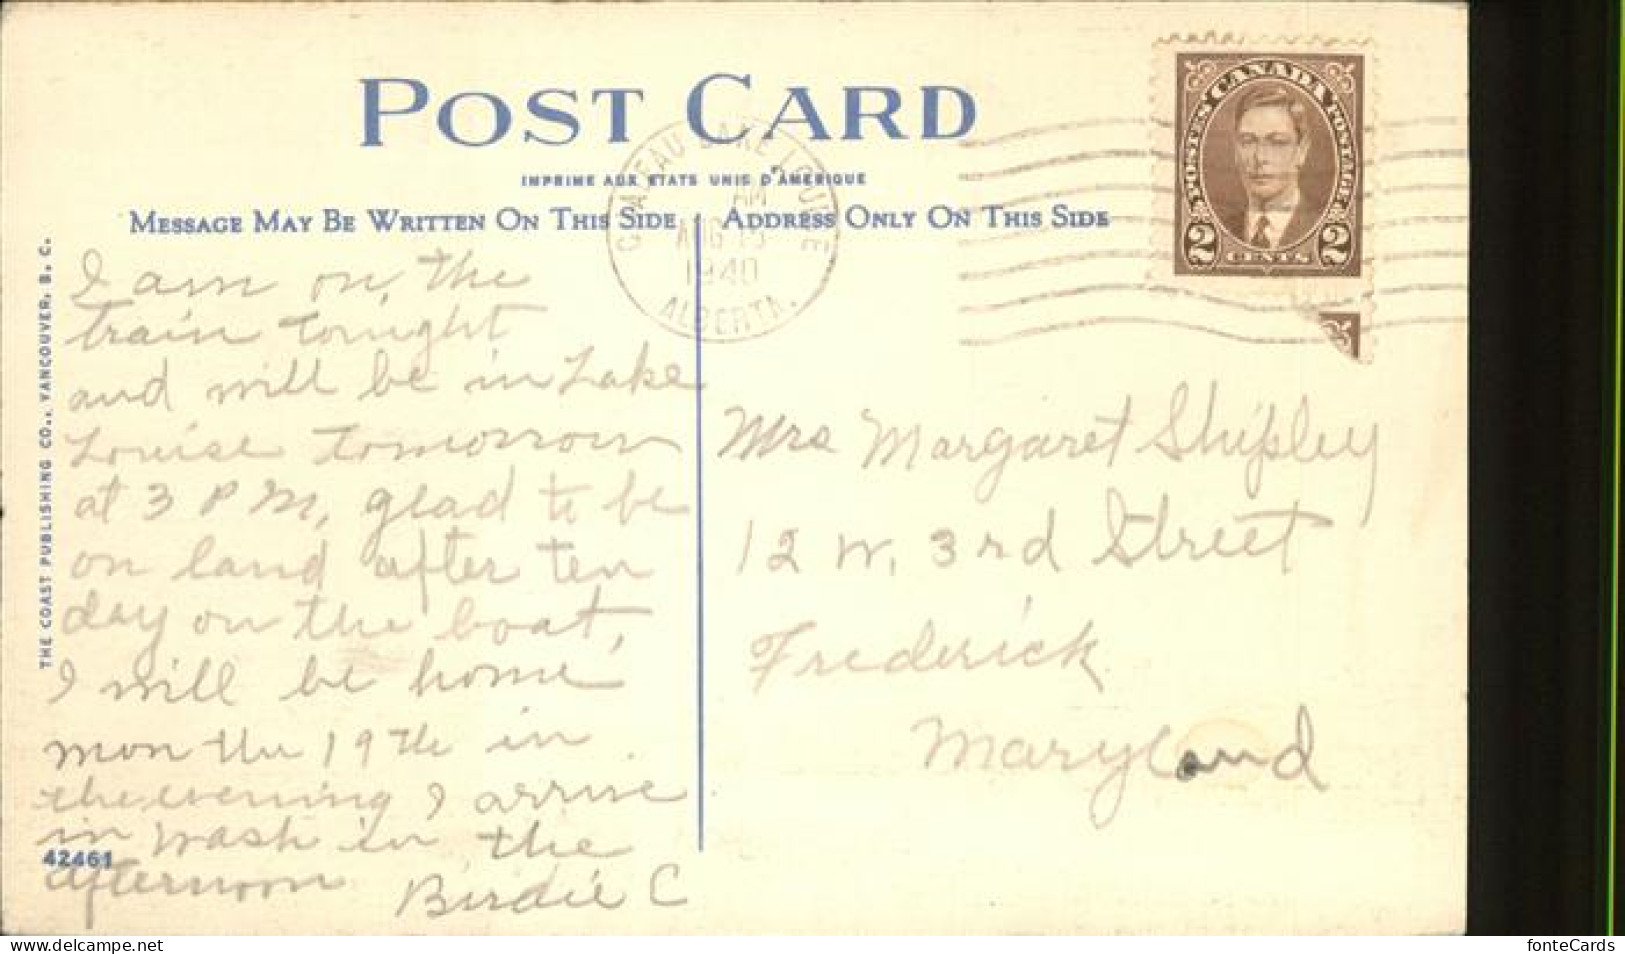 POST CARD
IMPRIME AUX ETATS UNIS D'AMERIQUE
MESSAGE MAY BE WRITTEN ON THIS SIDE
ADDRESS ONLY ON THIS SIDE
CHATEAU LAKE LOUISE
AM
AUG 15
1940
ALBERTA.
POSTES CANADA POSTAGE
2 CENTS 2
I am on, the
train tonight
and will be in Lake
Louise tomorrow
at 3 PM, glad to be
on land after ten
day on the boat,
I will be home
mon the 19th in
the evening I arrive
in wash in the
afternoon Birdie C
Mrs Margaret Shipley
12 W. 3rd Street
Frederick
Maryland
THE COAST PUBLISHING CO., VANCOUVER, B. C.
42461
fonteCards